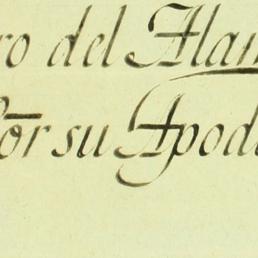 ro del Alam
Por su Apod